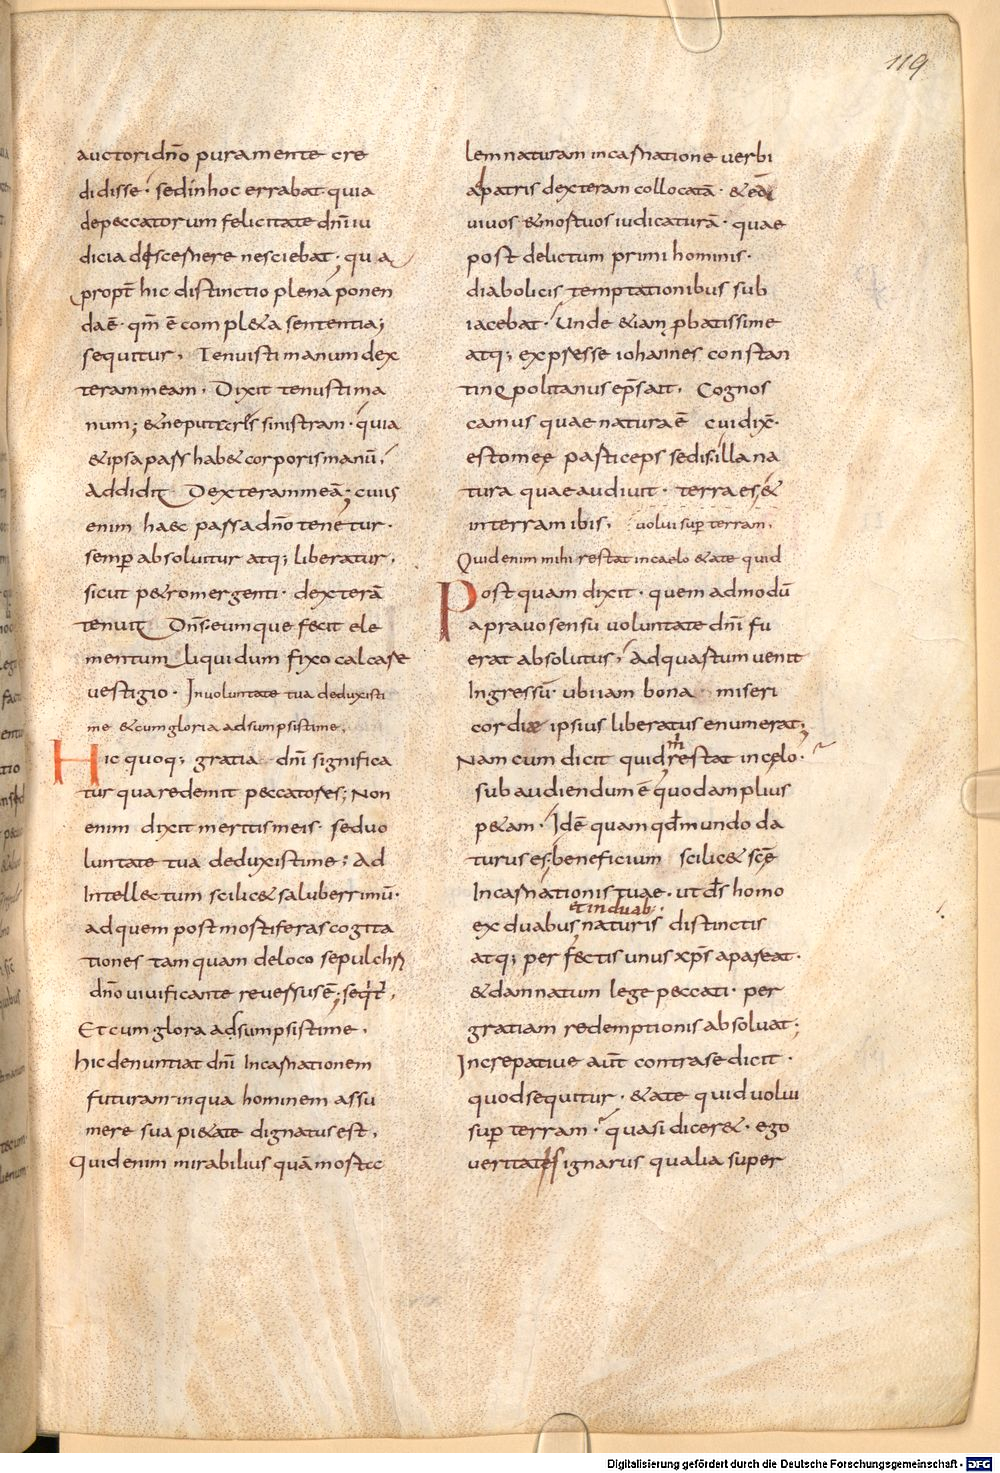 119
auctori dn̄o pura mente cre
didisse · sed in hoc errabat quia
de peccatorum felicitate dn̄i iu
dicia discernere nesciebat · qua
propt̄ hic distinctio plena ponen
da ē · qm̄ ē completa sententia;
sequitur, Tenuisti manum dex
teram meam · Dixit tenuisti ma
num; & ne putares sinistram · quia
& ipsa pars habet corporis manū,
Addidit Dexteram meā; cuius
enim haec pars a dn̄o tenetur ·
semp̄ absoluitur atq; liberatur,
sicut petro mergenti · dexterā
tenuit Dn̄s · eumque fecit ele
mentum liquidum fixo calcare
vestigio · In voluntate tua deduxisti
me & cum gloria adsumpsisti me,
Hic quoq; gratia dn̄i significa
tur qua redemit peccatores; Non
enim dixit meritis meis · sed uo
luntate tua deduxisti me; Ad
Intellectum scilicet saluberrimū ·
ad quem post mortiferas cogita
tiones tamquam de loco sepulchri
dn̄o vivificante reversus ē; seqt̄,
Et cum glora adsumpsisti me,
hic denuntiat dn̄i Incarnationem
futuram in qua hominem assu
mere sua pietate dignatus est,
Quid enim mirabilius quā morta
lem naturam incarnatione verbi
ad patris dexteram collocatā · & eā
uiuos & mortuos iudicaturā · quae
post delictum primi hominis ·
diabolicis temptationibus sub
iacebat · Unde & iam p̱batissime
atq; expresse iohannes constan
tinopolitanus ep̄s ait, Cognos
camus quae natura ē cui dix̄ ·
esto mee particeps sedis; illa na
tura quae audiuit · terra es, &
in terram ibis, uolui sup̄ terram,
Quid enim mihi restat in caelo & a te quid
Postquam dixit · quemadmodū
a pravo sensu voluntate dn̄i fu
erat absolutus, Ad quartum venit
Ingressū · ubi iam bona miseri
cordiae ipsius liberatus enumerat;
m̄
Nam cum dicit quid restat in celo ·
subaudiendum ē quod amplius
petam · Idē quam qd̄ mundo da
turus es; beneficium scilicet scē
Incarnationis tuae · ut d̄s homo
et in duab;
ex duabus naturis distinctis
atq; perfectis unus xp̄s apareat ·
& damnatum lege peccati · per
gratiam redemptionis absoluat;
Increpative aut̄ contra se dicit ·
quod sequitur · & a te quid uolui
sup̄ terram · quasi diceret · ego
veritatis ignarus qualia super
Digitalisierung gefördert durch die Deutsche Forschungsgemeinschaft - DFG